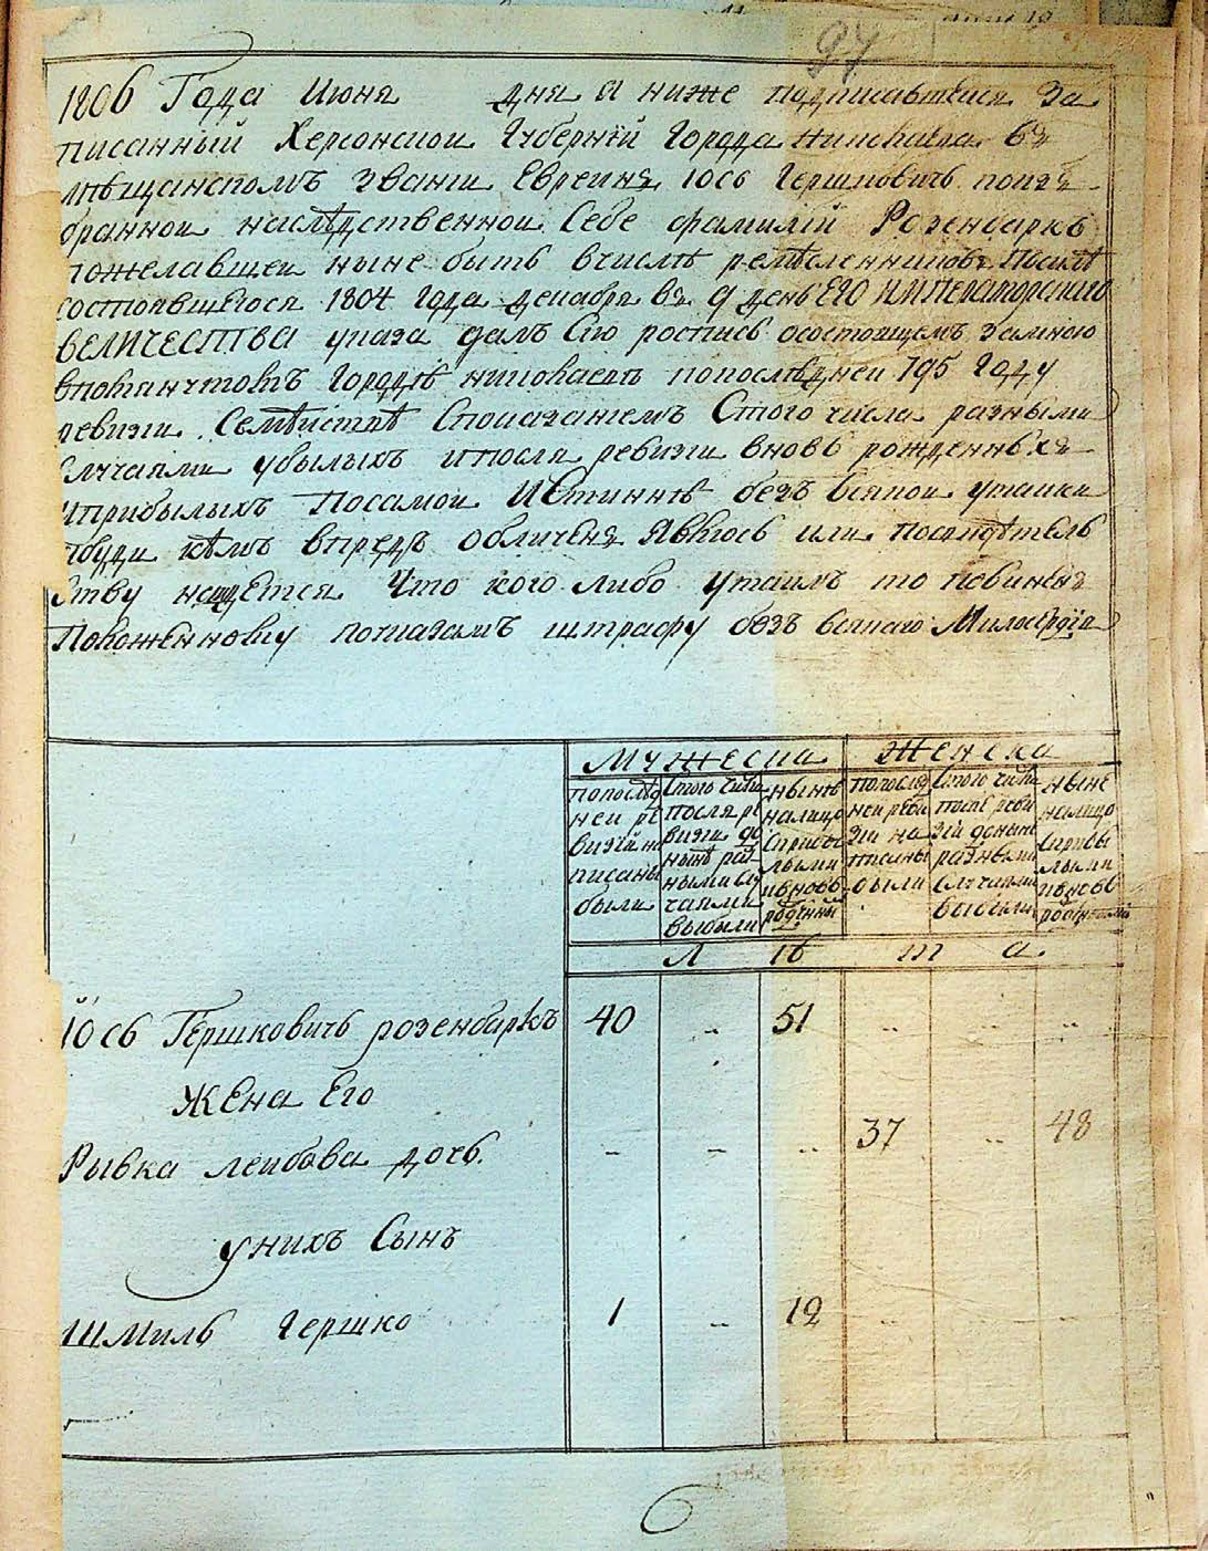 97
1806 Года Июня дня я ниже подписавшеися За
писанный Херсонскои Губернїй Города Николаева въ
мѣщанскомъ званіи Евреинъ Іось Гершковичь поизъ
бранной наслѣдственнои Себе фамилїй Розенбаркъ
пожелавшеи ныне быть вчислѣ ремѣсленниковъ Поснлѣ
состоявшегося 1804 года декабря въ 9 день ЕГО ИМПЕРаторскаго
ВЕЛИЧЕСТВА указа далъ Сїю роспись осостоящемъ Замною
Городѣ николаевѣ попослѣдней 795 Году
ревизіи Семѣистве Споказаніемъ Стого числа разными
Случаями убылыхъ ипосля ревизіи вновь рожденныхъ
Иприбылыхъ Посамои ИСтиннѣ безъ всякои утаики
абуди кѣмъ впредъ обличенъ Явлюсь или послѣдтель
Ству найдЕтся Что кого либо утаилъ то повиненъ
Положенному поуказамъ штрафу безъ всякаго Милосердїя
Мужеска Женска
попослѣд
неи ре
визїй на
писаны
были
Стого числа
после ре
визіи до
нынѣ раз
ными слу
чаями
выбыли
нынѣ
налицо
Сприбы
лыми
ивновь
рожденны
попослед
неи реви
зіи на
писаны
были
Стого числа
послѣ реви
зїй доныне
разными
Случаями
выбыли
ныне
налицо
Сприбы
лыми
ивновь
рожденными
Л ѣ т а
Іось Гершковичь розенбаркъ 40 „ 51 „ „ „
Жена Его
Рывка леибова дочь. „ „ „ 37 „ 48
унихъ Сынъ
Шмиль Гершко 1 „ 12 „ „ „